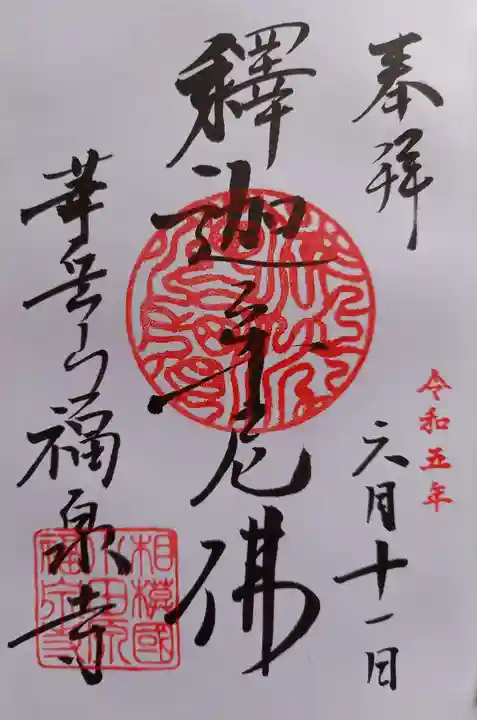 奉拝
令和五年
六月十一日
釋迦牟尼佛
華岳山福泉寺
相模國
小田原
福泉寺